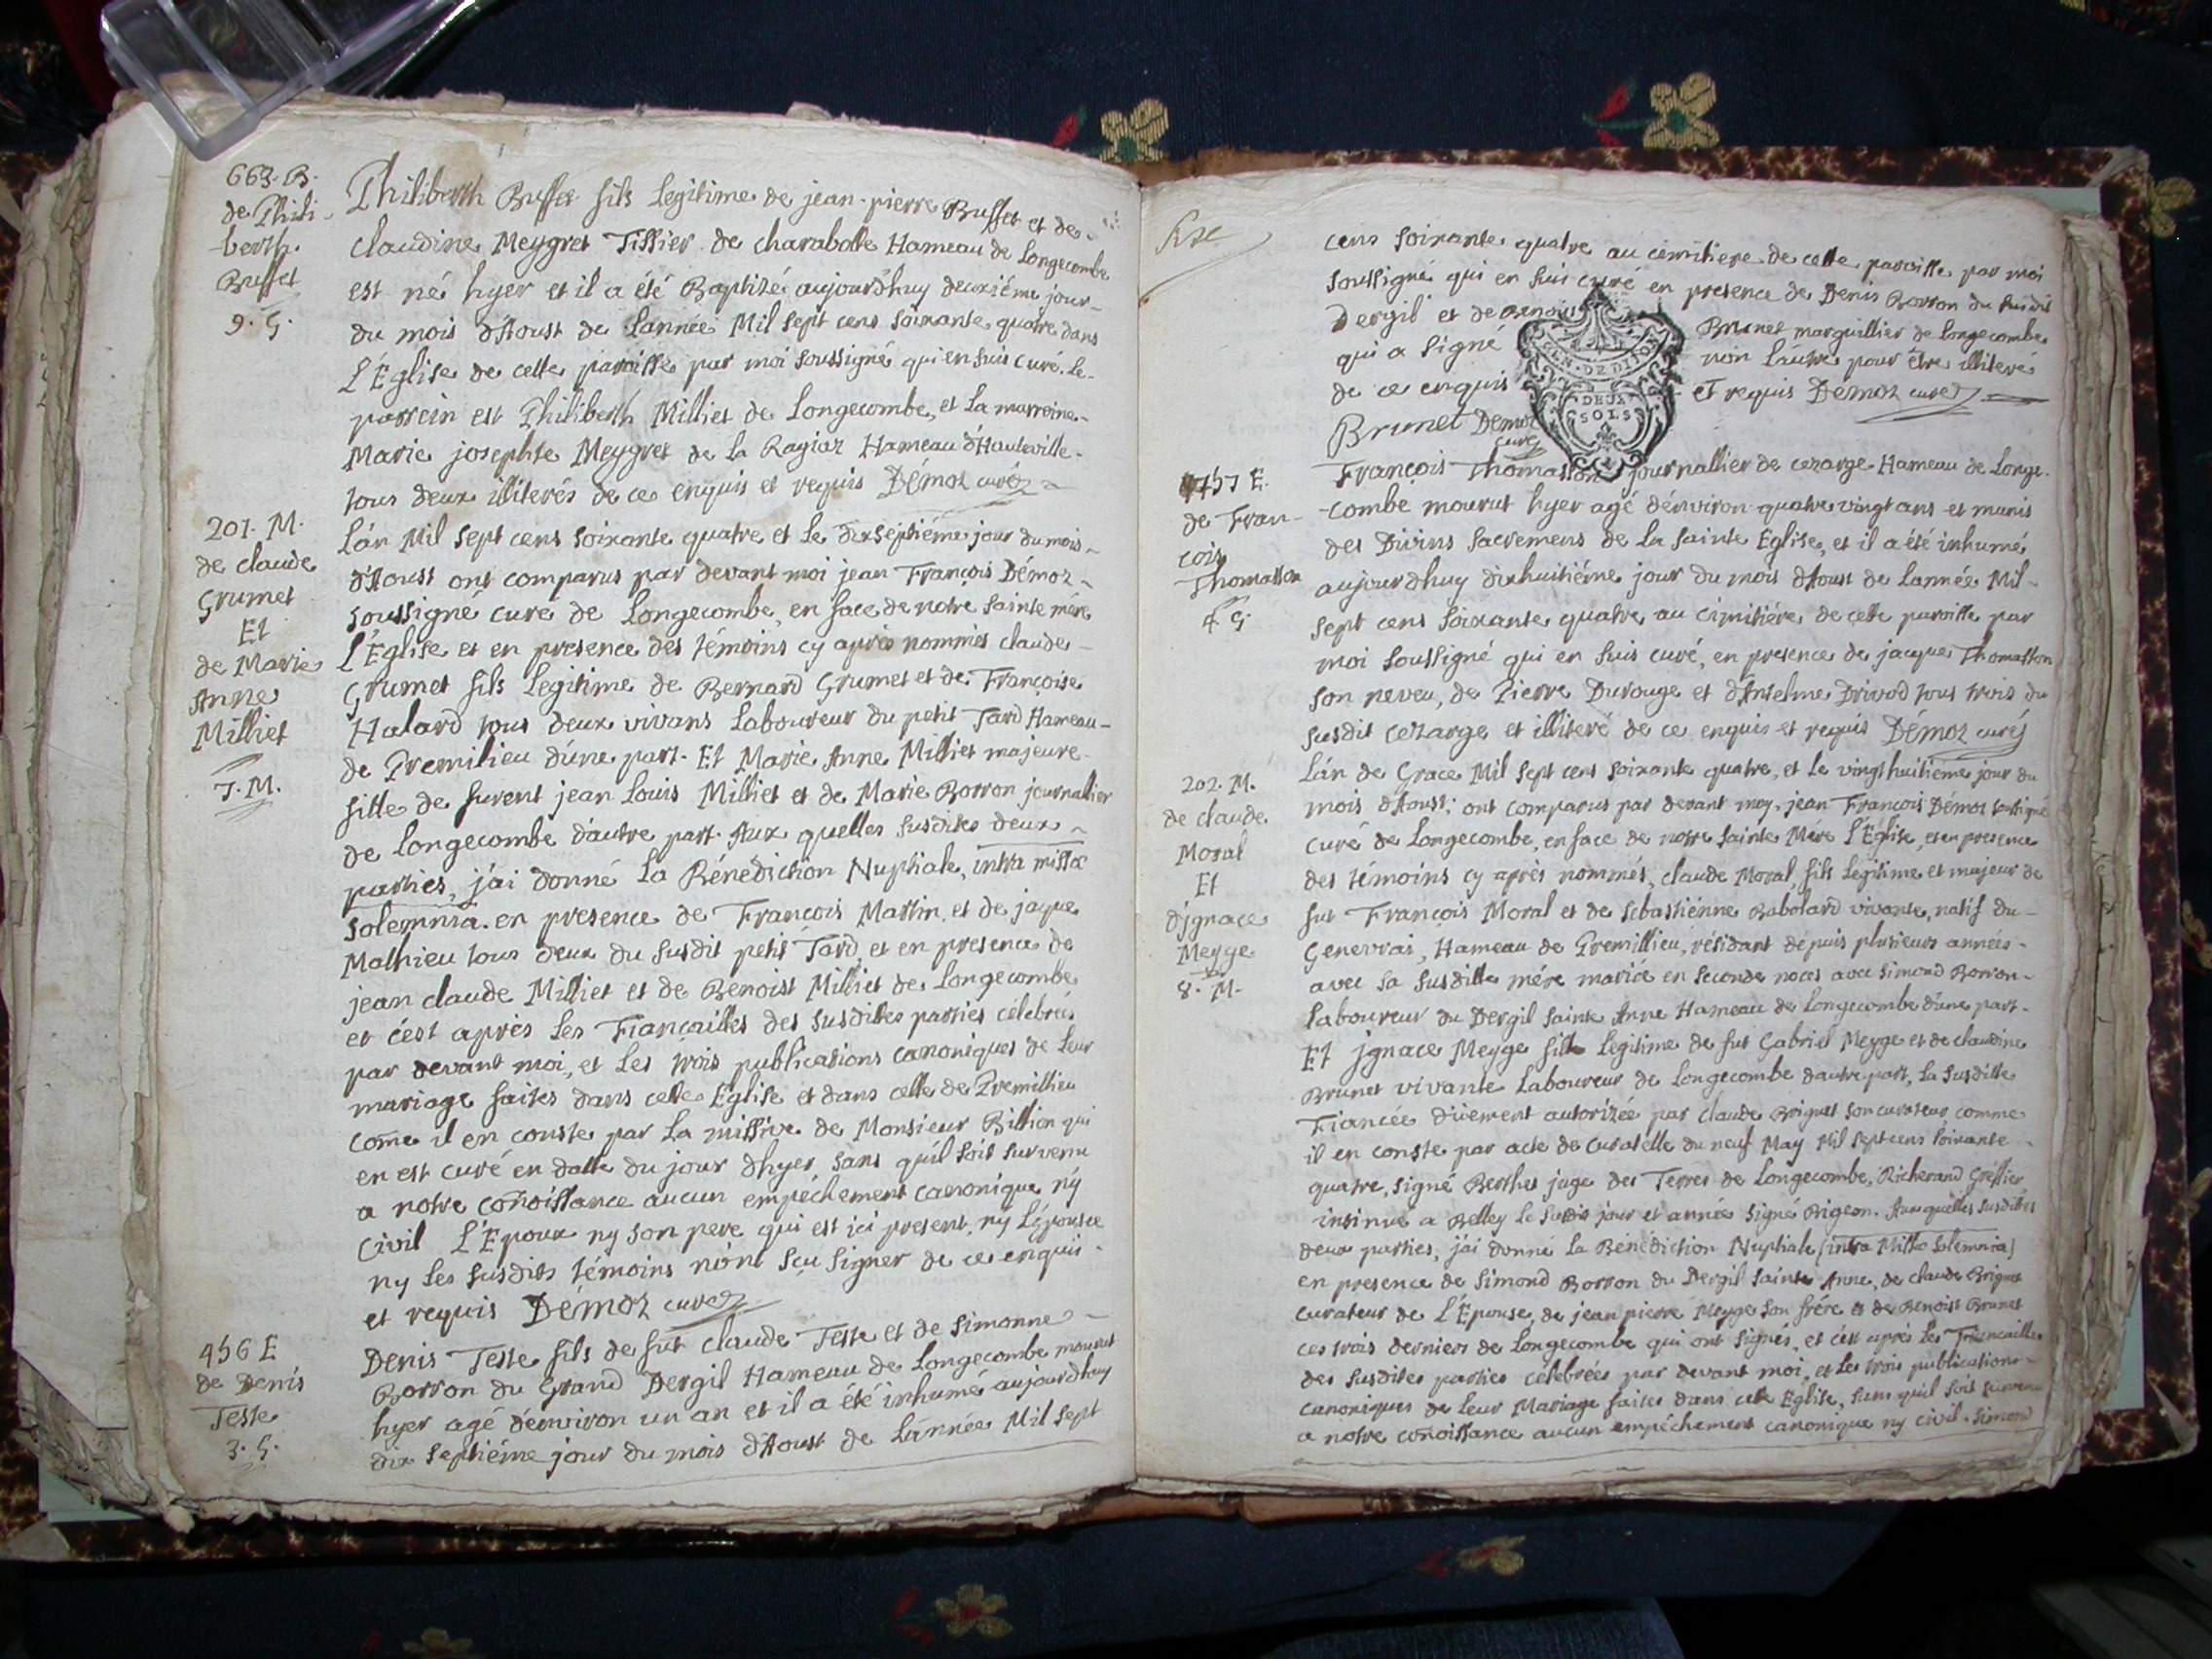 663. B.
de Phili-
-berth.
Buffet
9. G.
Philiberth Buffet fils legitime de jean-pierre Buffet et de-
claudine Meygret Tissier de charabotte Hameau de Longecombe
est né hyer et il a été Baptizé aujourdhuy deuxiéme jour-
du mois d'Aoust de lannée Mil sept cens soixante quatre dans
L'Église de cette paroisse par moi soussigné qui en suis curé. Le-
parrein est Philiberth Milliet de Longecombe, et La marreine-
Marie josephte Meygret de La Ragiaz Hameau d'Hauteville-
tous deux illiterés de ce enquis et requis Démoz curé
201. M.
de claude
Grumet
Et
de Marie
Anne
Milliet
7. M.
L'an Mil sept cens soixante quatre et Le dixseptiéme jour du mois-
d'Aoust ont comparus par devant moi jean François Démoz-
soussigné curé de Longecombe, en face de notre sainte mére
L'Église et en presence des témoins cy aprés nommés claude-
Grumet fils Legitime de Bernard Grumet et de Françoise
Halard tous deux vivans Laboureur du petit Tard Hameau-
de Premilieu d'une part. Et Marie Anne Milliet majeure-
fille de furent jean Louis Milliet et de Marie Borron journallier
de Longecombe d'autre part. Aux quelles susdites deux-
parties, j'ai donné La Bénédiction Nuptiale, intra missæ
solemnia. en presence de François Martin, et de jaque
Mathieu tous deux du susdit petit Tard, et en presence de
jean claude Milliet et de Benoist Milliet de Longecombe
et c'est aprés Les Fiancailles des susdittes parties célébrées
par devant moi, et Les trois publications canoniques de Leur
mariage faites dans cette Église et dans celle de Premillieu
come il en conste par La missive de Monsieur Billion qui
en est curé en datte du jour d'hyer, sans qu'il soit survenu
a notre conoissance aucun empéchement canonique ny
civil L'Epoux ny son pere qui est ici present, ny L'épouse
ny Les susdits témoins n'ont sçu signer de ce enquis-
et requis Démoz curé
456 E
de Denis
Teste
3. G.
Denis Teste fils de fut claude Teste et de simonne-
Borron du Grand Dergil Hameau de Longecombe mourut
hyer agé d'environ un an et il a été inhumé aujourdhuy
dix septiéme jour du mois d'Aoust de L'année Mil sept
cens soixante quatre au cimitiere de cette paroisse par moi
soussigné qui en suis curé en presence de Denis Borron du susdit
Dergil et de Brunet marguillier de Longecombe
qui a signé non lautre pour être illiteré
de ce enquis et requis Démoz curé
Brunet Démoz
curé
GEN. DE DIJON
DEUX
SOLS
457 E.
de Fran-
cois
Thomasson
4. G.
François Thomasson journallier de cezarge Hameau de Longe-
-combe mourut hyer agé d'environ quatre vingt ans et munis
des Divins sacremens de La sainte Église, et il a été inhumé
aujourdhuy dixhuitiéme jour du mois d'Aoust de Lannée Mil-
sept cens soixante quatre au cimitiére de cette paroisse par
moi soussigné qui en suis curé, en presence de jacque Thomasson
son neveu, de Pierre Durouge et d'Antelme Drivod tous trois du
susdit cezarge et illiteré de ce enquis et requis Démoz curé
202. M.
de claude
Moral
Et
d'jgnace
Meyge
8. M.
L'an de Grace Mil sept cens soixante quatre, et Le vingt huitiéme jour du
mois d'Aoust: ont comparus par devant moy, jean François Démoz soussigné
curé de Longecombe, en face de notre sainte Mére L'Église, et en presence
des témoins cy aprés nommés, claude Moral fils Légitime et majeur de
fut François Moral et de sebastiénne Babolard vivante, natif du-
Genevrai, Hameau de Premillieu, résidant dépuis plusieurs années-
avec sa susditte mére mariée en seconde noces avec simond Borron-
Laboureur du Dergil sainte Anne Hameau de Longecombe d'une part-
Et jgnace Meyge fille Legitime de fut Gabriel Meyge et de claudine
Brunet vivante Laboureur de Longecombe d'autre part, La susditte
Fiancée düement autorizée par claude Briguet son curateur comme
il en conste par acte de curatelle du neuf May Mil sept cens soixante
quatre, signé Berthet juge des Terres de Longecombe, Richerand Greffier
insinué a Belley Le susdit jour et année signé Brigeon. Aux quelles susdittes
deux parties, j'ai donné La Bénédiction Nuptiale (intra Missæ solemnia)
en presence de simond Borron du Dergil sainte Anne, de claude Briguet
curateur de L'Épouse, de jean pierre Meyge son frére et de Benoist Brunet
ces trois derniers de Longecombe qui ont signés, et c'est aprés Les Fiancailles
des susdites parties célébrées par devant moi, et Les trois publications-
canoniques de Leur Mariage faites dans cette Eglise, sans qu'il soit survenu
a notre conoissance aucun empéchement canonique ny civil. simond